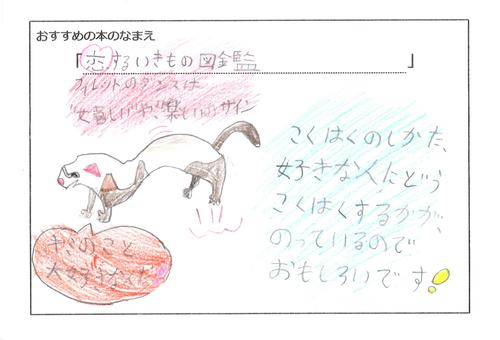 おすすめの本のなまえ
「恋するいきもの図鑑」
フェレットのダンスは
"女喜しい"や"楽しい"のサイン
こくはくのしかた、
好きな人にどう
こくはくするかが、
のっているので
おもしろいです!
キミのこと
大好きなんだ